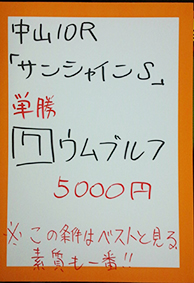 中山10R
「サンシャインS」
単勝
7 ウムブルフ
5000円
※この条件はベストと見る
素質も一番!!